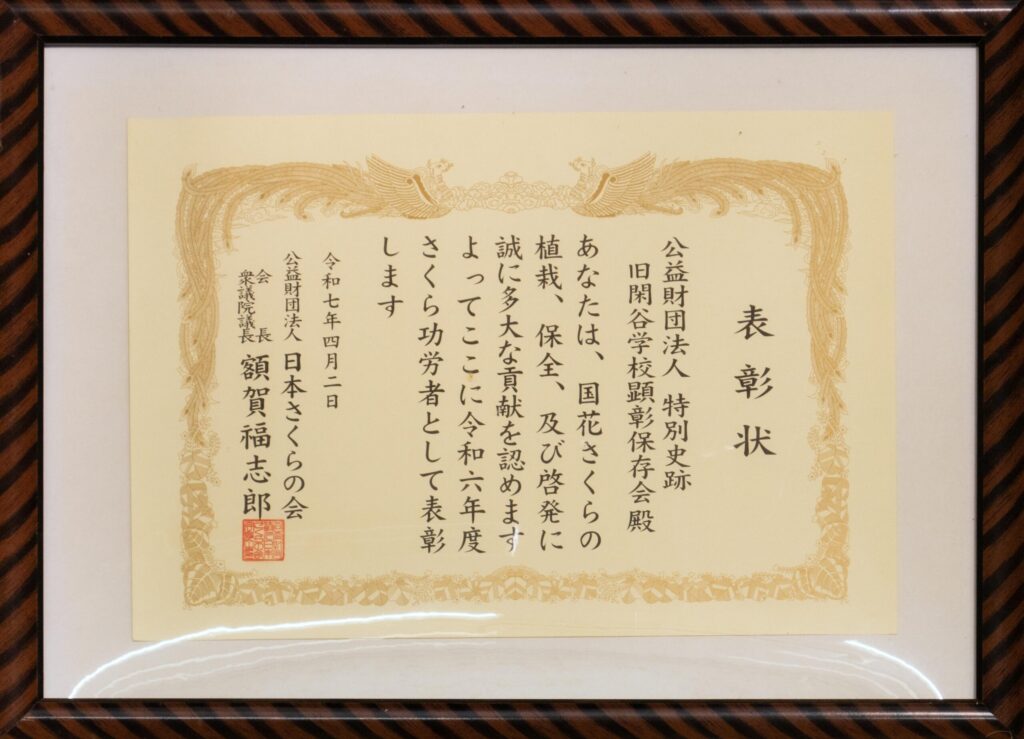 表彰状
公益財団法人 特別史跡
旧閑谷学校顕彰保存会 殿
あなたは、国花さくらの
植栽、保全、及び啓発に
誠に多大な貢献を認めます
よってここに令和六年度
さくら功労者として表彰
します
令和七年四月二日
公益財団法人 日本さくらの会
会長
衆議院議長 額賀福志郎